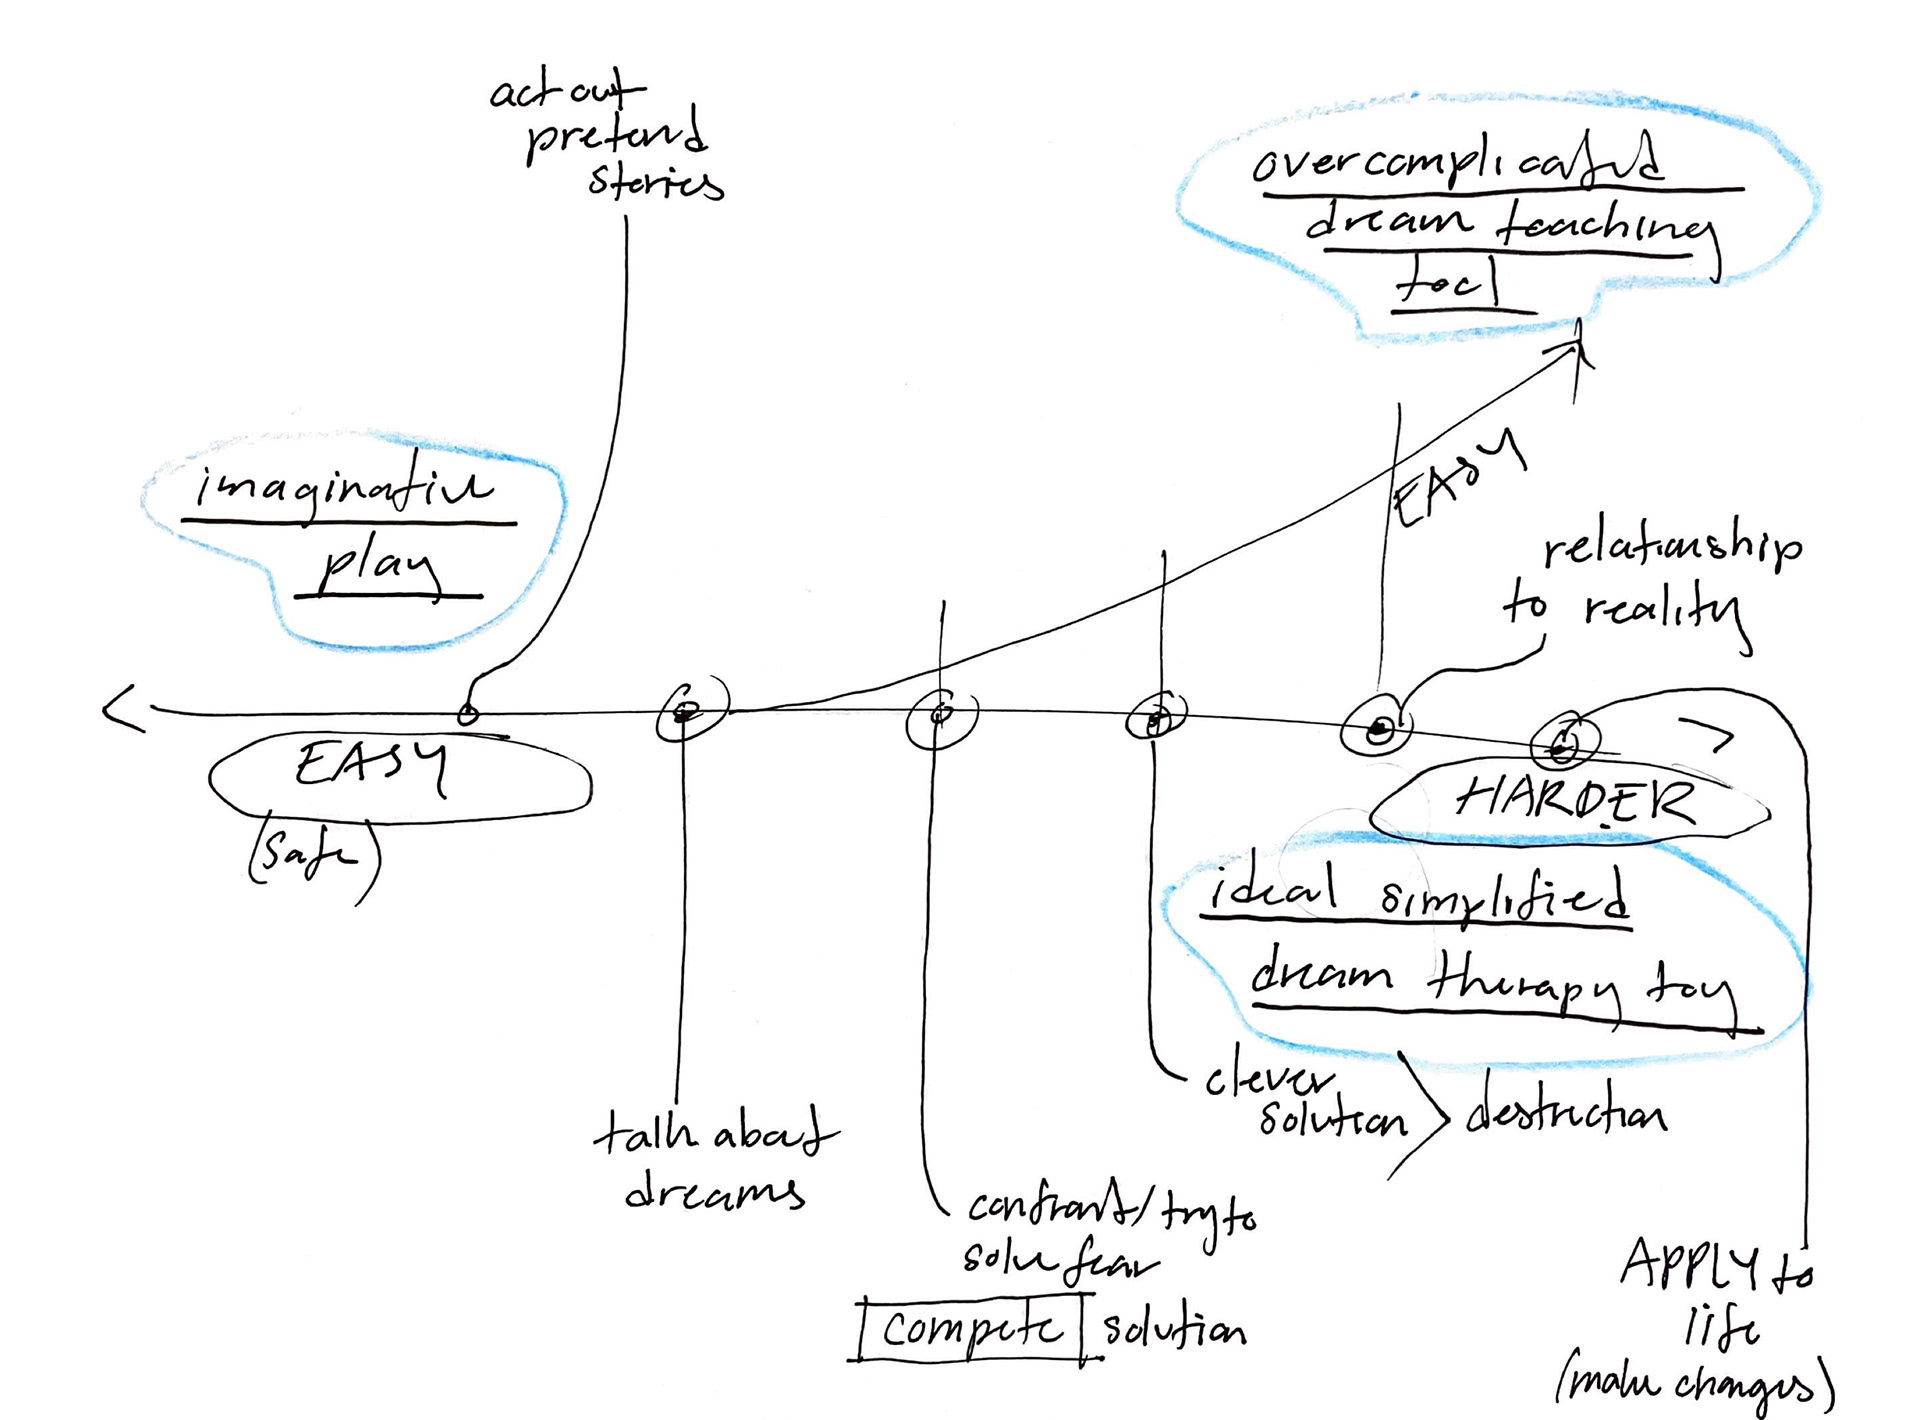 act out
pretend
stories
overcomplicated
dream teaching
tool
imaginative
play
EASY
relationship
to reality
EASY
(safe)
HARDER
ideal simplified
dream therapy toy
clever
solution > destruction
talk about
dreams
confront/try to
solve fear
compete solution
APPLY to
life
(make changes)